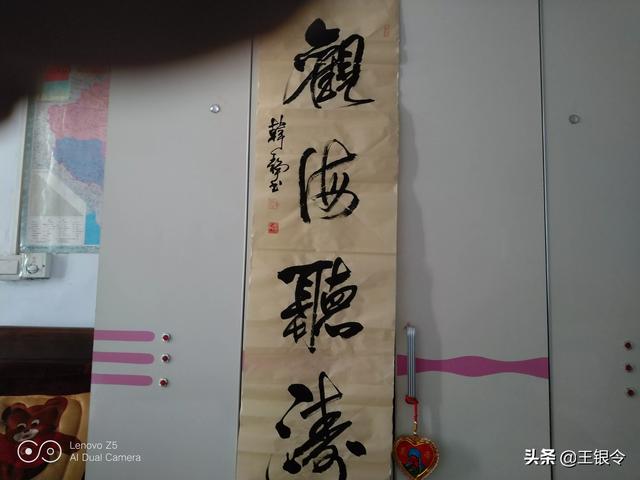 觀海聽濤
韓
书
Lenovo Z5
AI Dual Camera
头条 @王银令